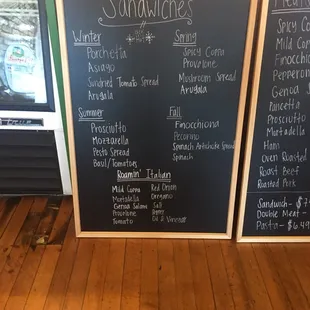 Sandwiches
Winter
Porchetta
Asiago
Sundried Tomato Spread
Arugula
Spring
Spicy Coppa
Provolone
Mushroom Spread
Arugula
Summer
Prosciutto
Mozzarella
Pesto Spread
Basil/Tomatoes
Fall
Finocchiona
Pecorino
Spinach Artichoke Spread
Spinach
Roamin' Italian
Mild Coppa
Mortadella
Genoa Salame
Provolone
Tomato
Red Onion
Oregano
Salt
Oil & Vinegar
Spicy
Mild
Finocchi
Pepperon
Genoa
Pancetta
Prosciutto
Mortadella
Ham
Oven Roasted
Roast Beef
Roasted Pork
Sandwich - $7
Double Meat -
Pasta - $6.49